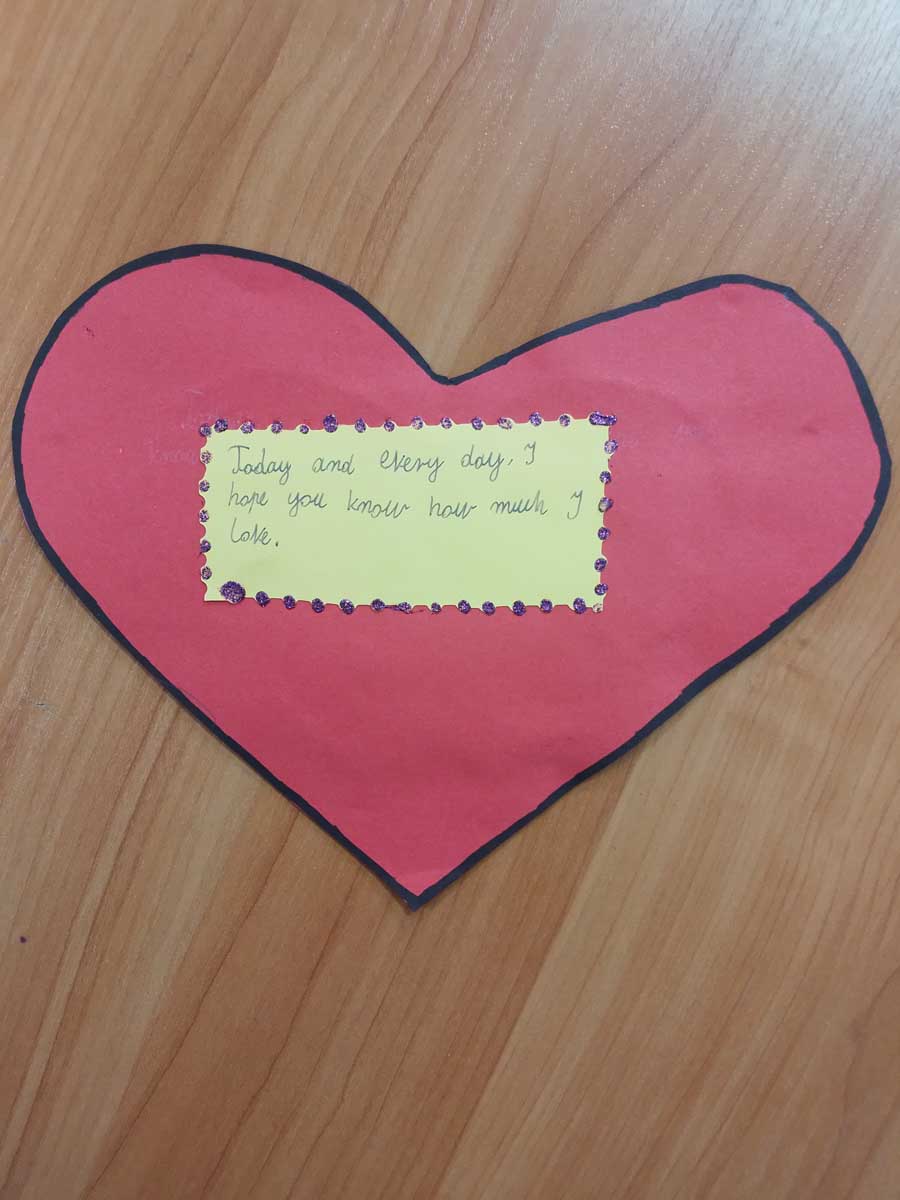 Today and every day, I
hope you know how much I
love.